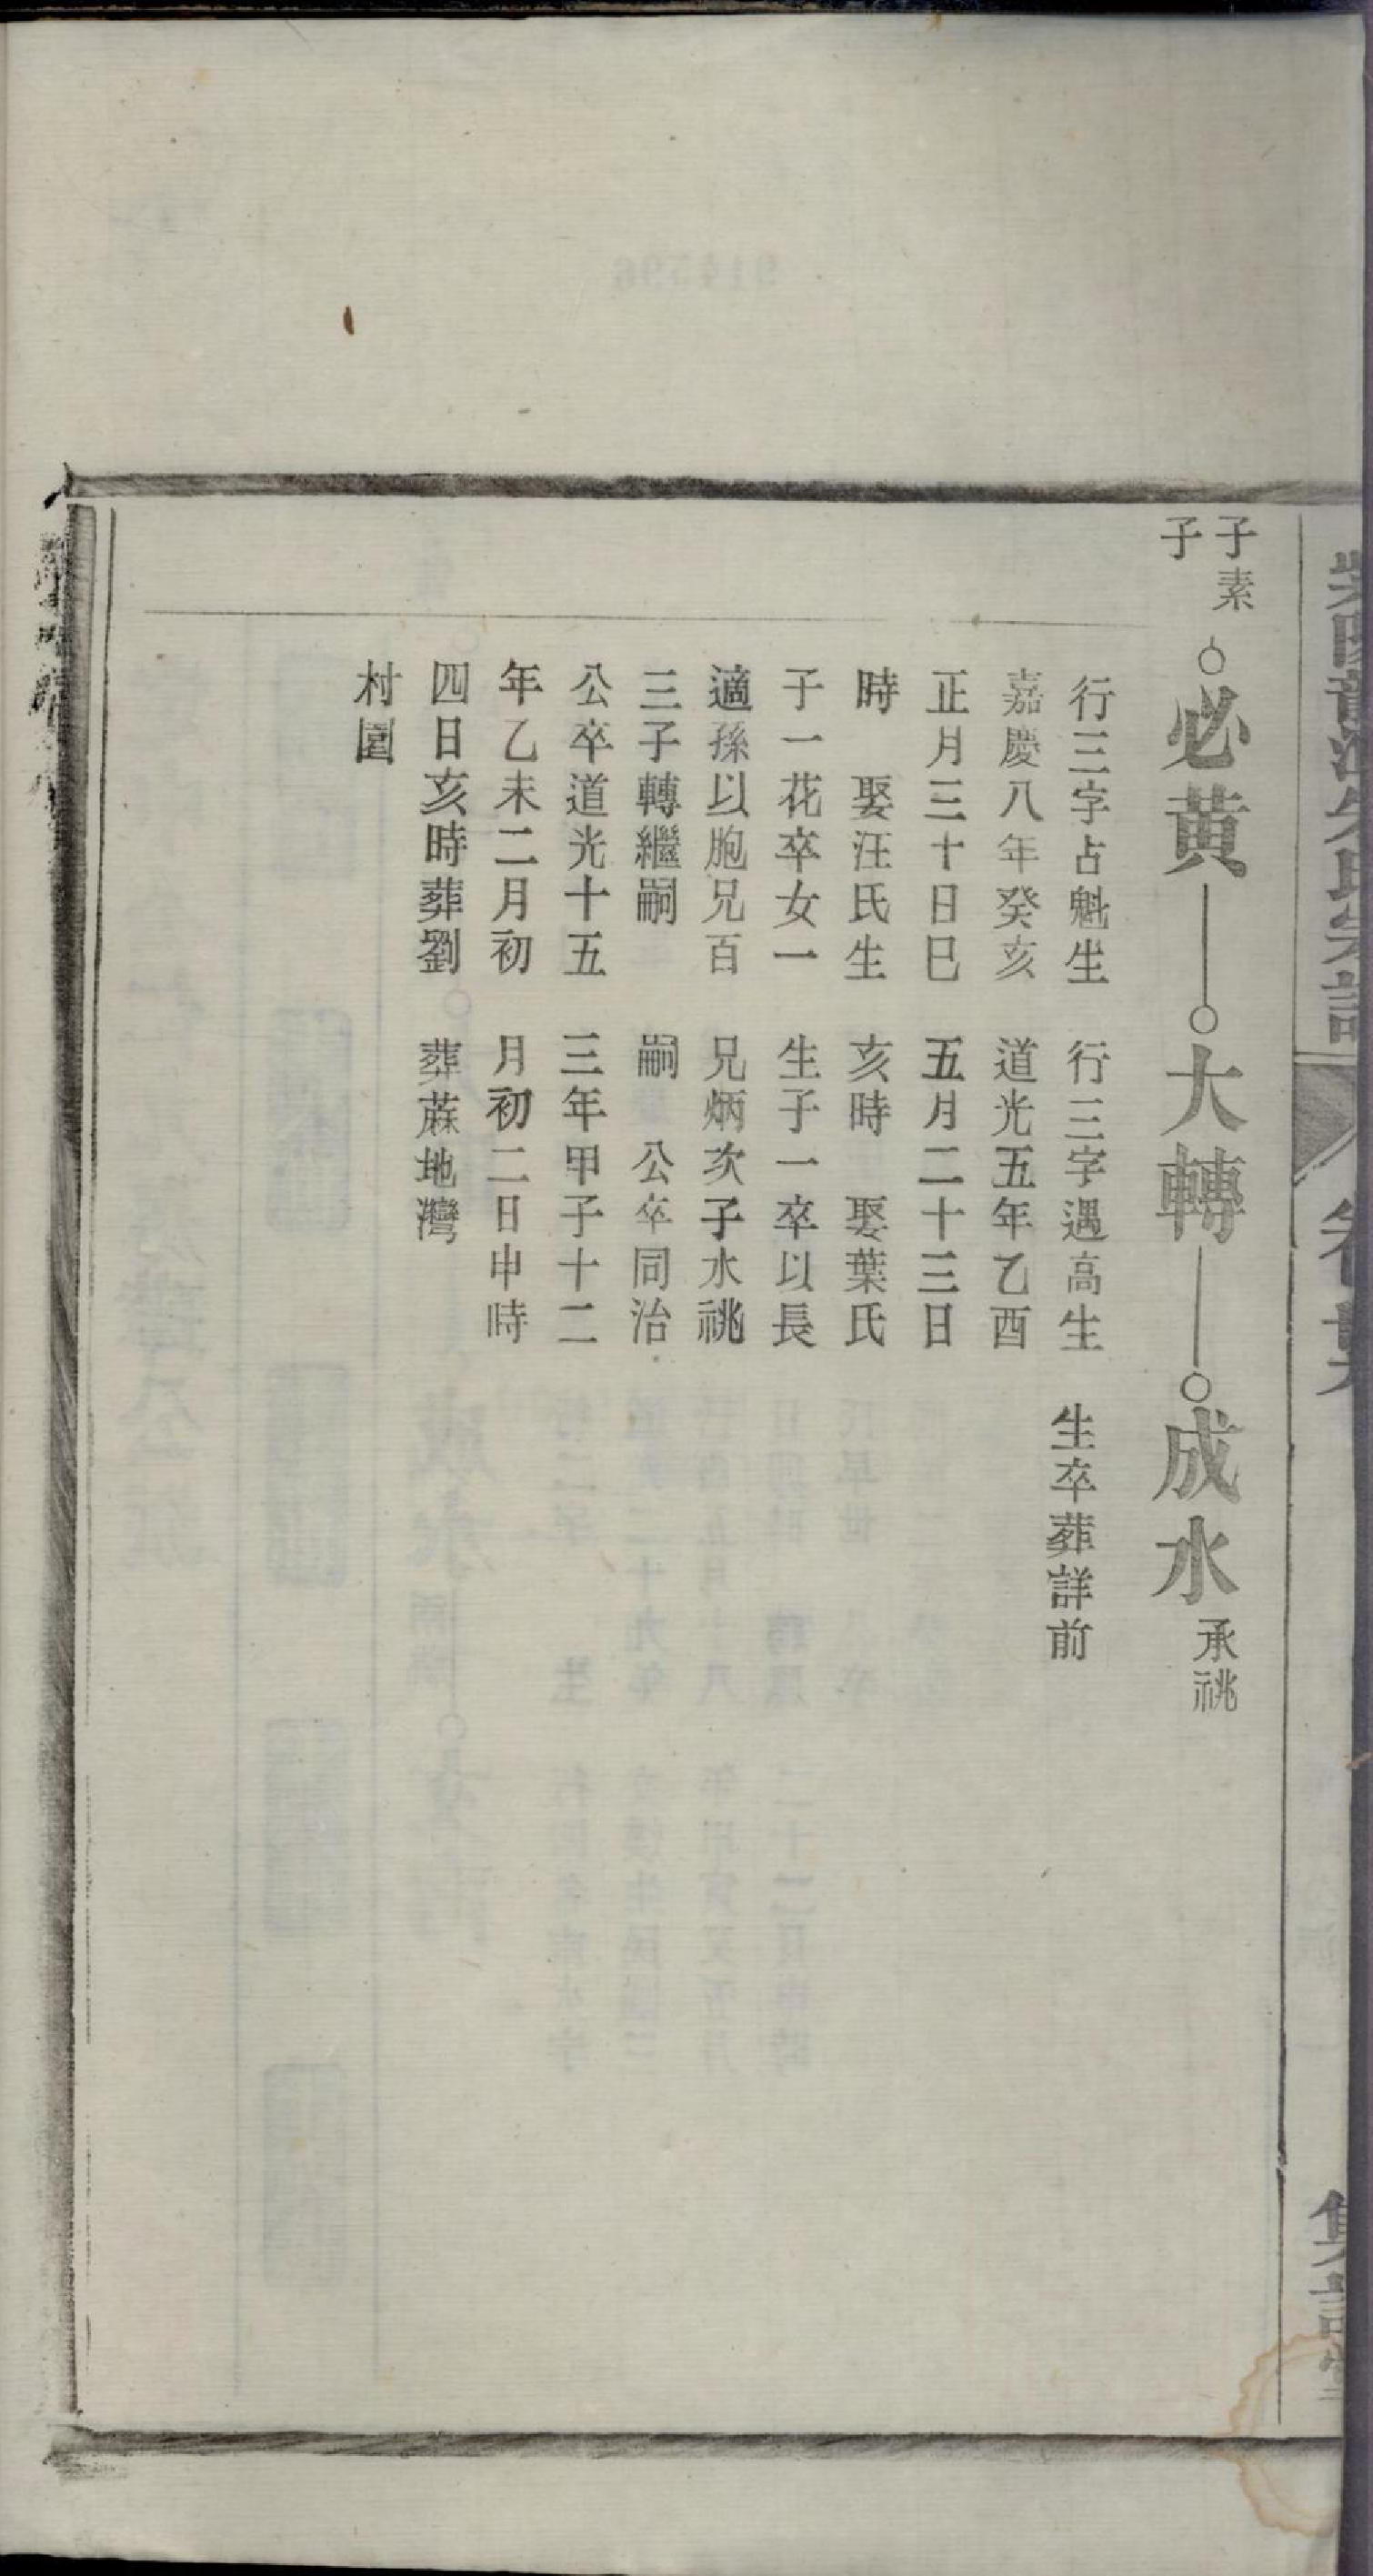 子素
子
必黃
大轉
成水承祧
行三字占魁生
嘉慶八年癸亥
正月三十日巳
時　娶汪氏生
子一花卒女一
適孫以胞兄百
三子轉繼嗣
公卒道光十五
年乙未二月初
四日亥時葬劉
村園
行三字遇高生
道光五年乙酉
五月二十三日
亥時　娶葉氏
生子一卒以長
兄炳次子水祧
嗣　公卒同治
三年甲子十二
月初二日申時
葬蔴地灣
生卒葬詳前